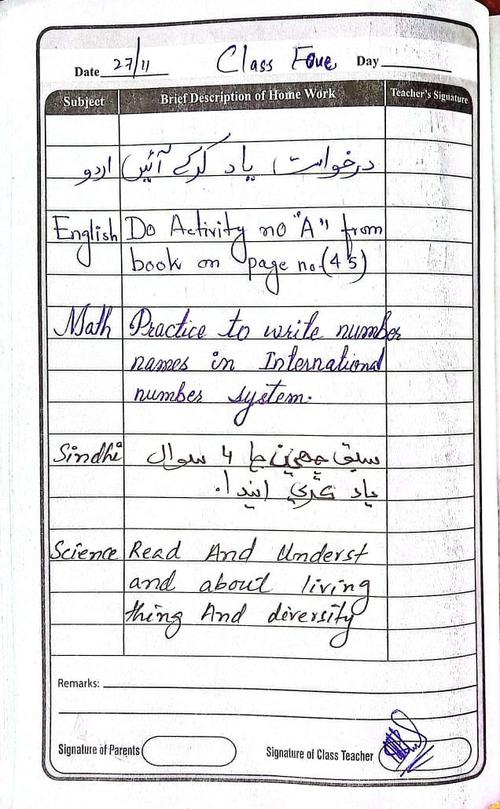 Date 27/11 Class Foue Day
Subject Brief Description of Home Work Teacher's Signature
اردو درخواست یاد کرکے آئیں
English Do Activity no "A" from
book on page no.(45)
Math Practice to write number
names in International
number system.
Sindhi سبق ڇهين جا 4 سوال
ياد ڪري ايندا.
Science Read And Underst
and about living
thing And diversity
Remarks:
Signature of Parents Signature of Class Teacher